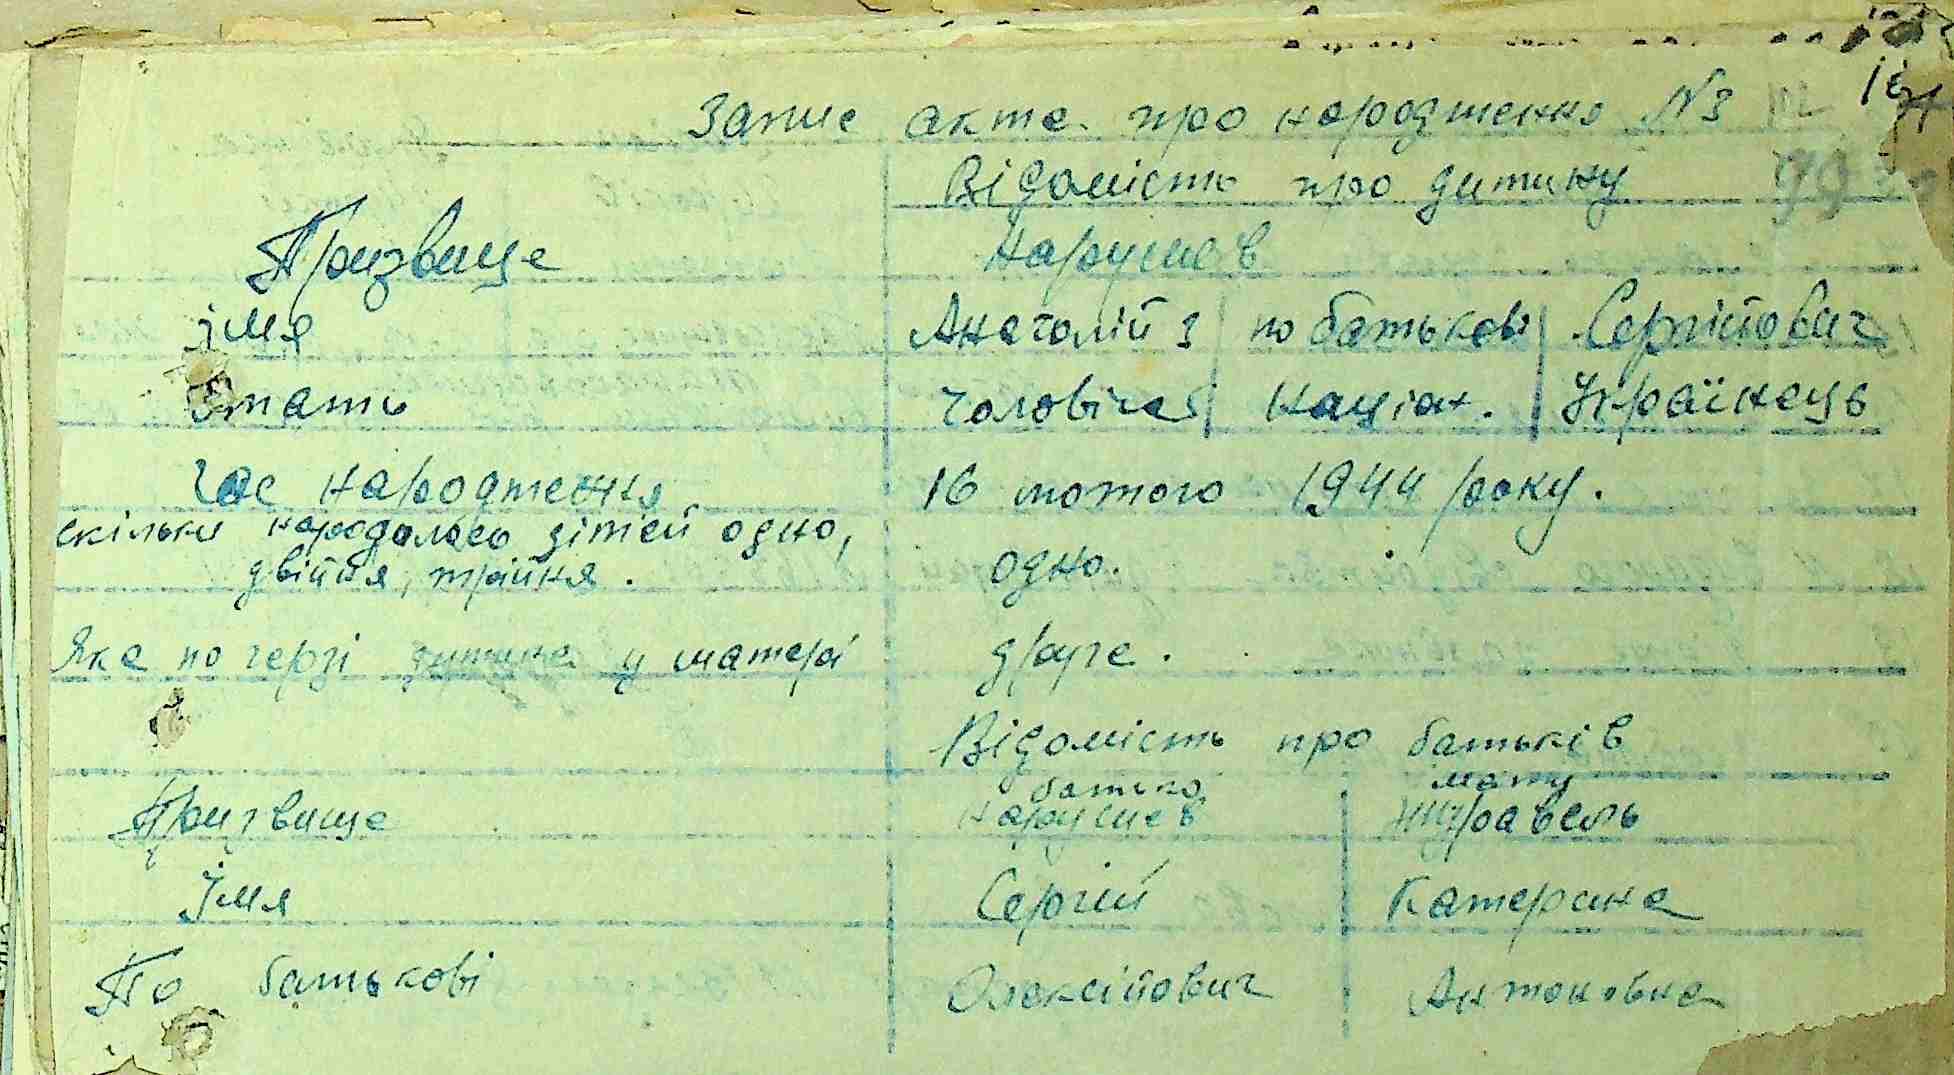 Запис акта про народження N3
Відомість про дитину 99
Призвище Нарушев
імя Анатолій по батькові Сергійович
Стать Чоловіча націон. Українець
Час народження 16 лютого 1944 року.
скільки народалось дітей одно,
двійня, трійня. одно.
Яке по черзі дитина у матері друге.
Відомість про батьків
батько мати
Призвище Нарушев Журавель
Імя Сергій Катерина
По батькові Олексійович Антоновна